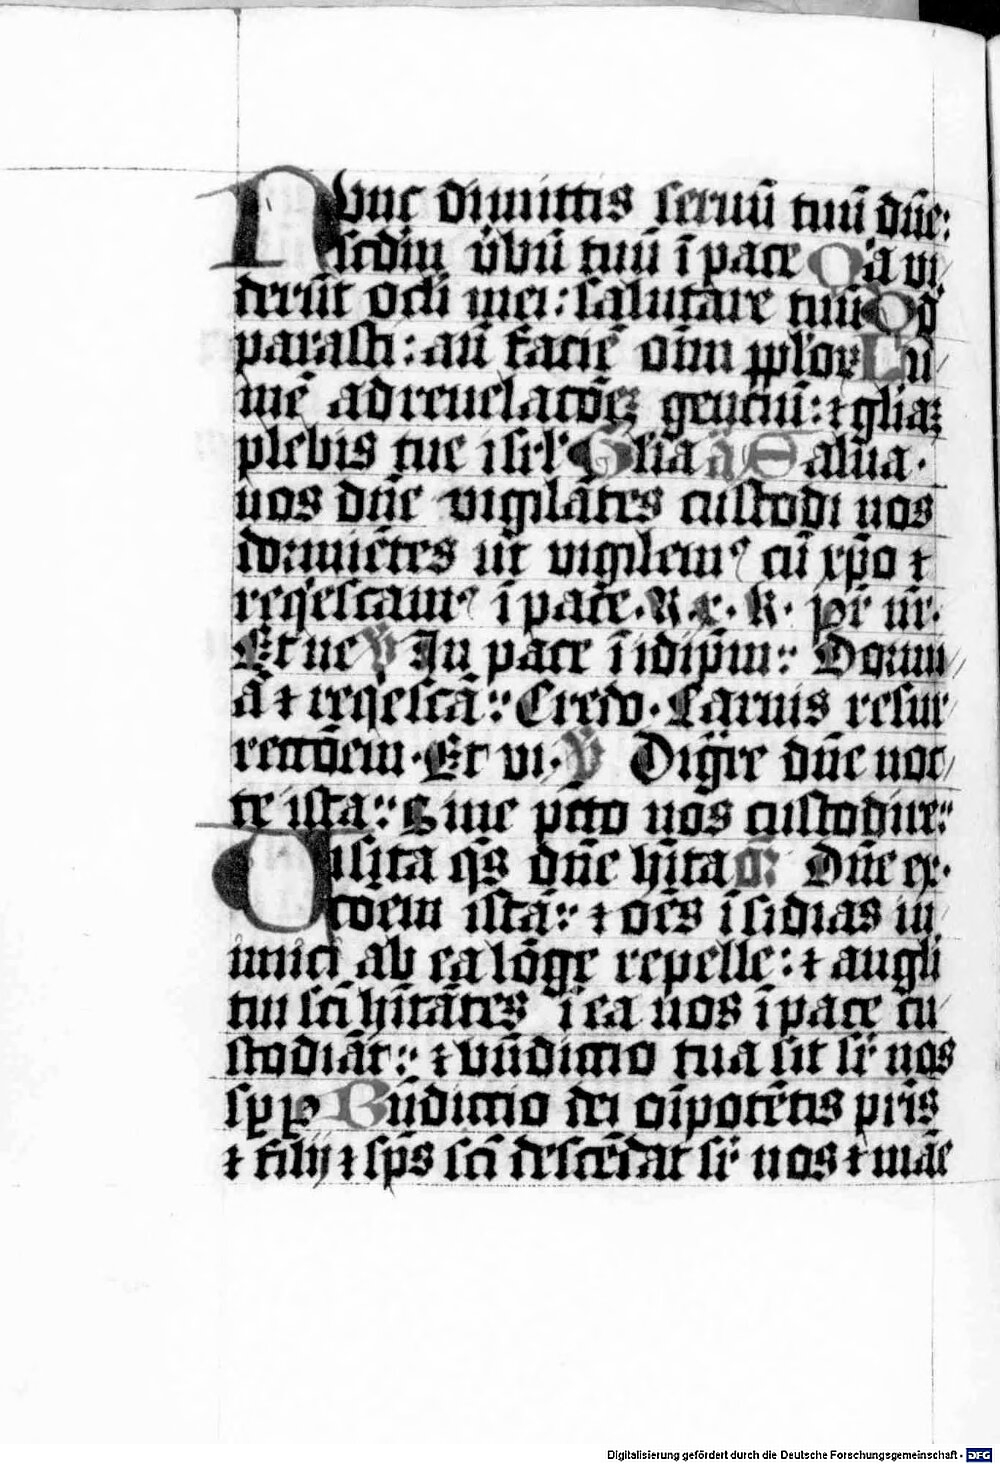 Nunc dimittis seruū tuū dn̄e:
scdm v̇bū tuū ī pace Qa vi/
derūt ocli mei: salutare tuū Qd
parasti: an̄ faciē oīm ppl'oꝝ Lu/
mē ad reuelacōeꝫ genciū: ⁊ gl'iaꝫ
plebis tue isrl' Gl'ia a Salua·
nos dn̄e vigilātes custodi nos
dormiētes ut vigilemꝰ cū xp̄o ⁊
reqͥescamꝰ ī pace. K. x. K. pr̄ nr̄.
Et ne ℣ In pace ī idip̄m: Dormi/
ā ⁊ reqͥescā: Credo. Carnis resur/
rectōem. Et vi. ℣ Digͣre dn̄e noc/
te ista: Sine pcto nos custodire:
Uisita qs dn̄e hīta Or Dn̄e ex.
cōem istā: ⁊ oēs īsidias in/
imici ab ea lōge repelle: ⁊ angli
tui sci hītātes ī ea nos ī pace cu/
stodiāt: ⁊ bn̄dictio tua sit sr̄ nos
sp ꝑ Bn̄dictio dei oīpotētis pr̄is
⁊ filij ⁊ sp̄s sci descēdat sr̄ nos ⁊ māe
Digitalisierung gefördert durch die Deutsche Forschungsgemeinschaft - DFG